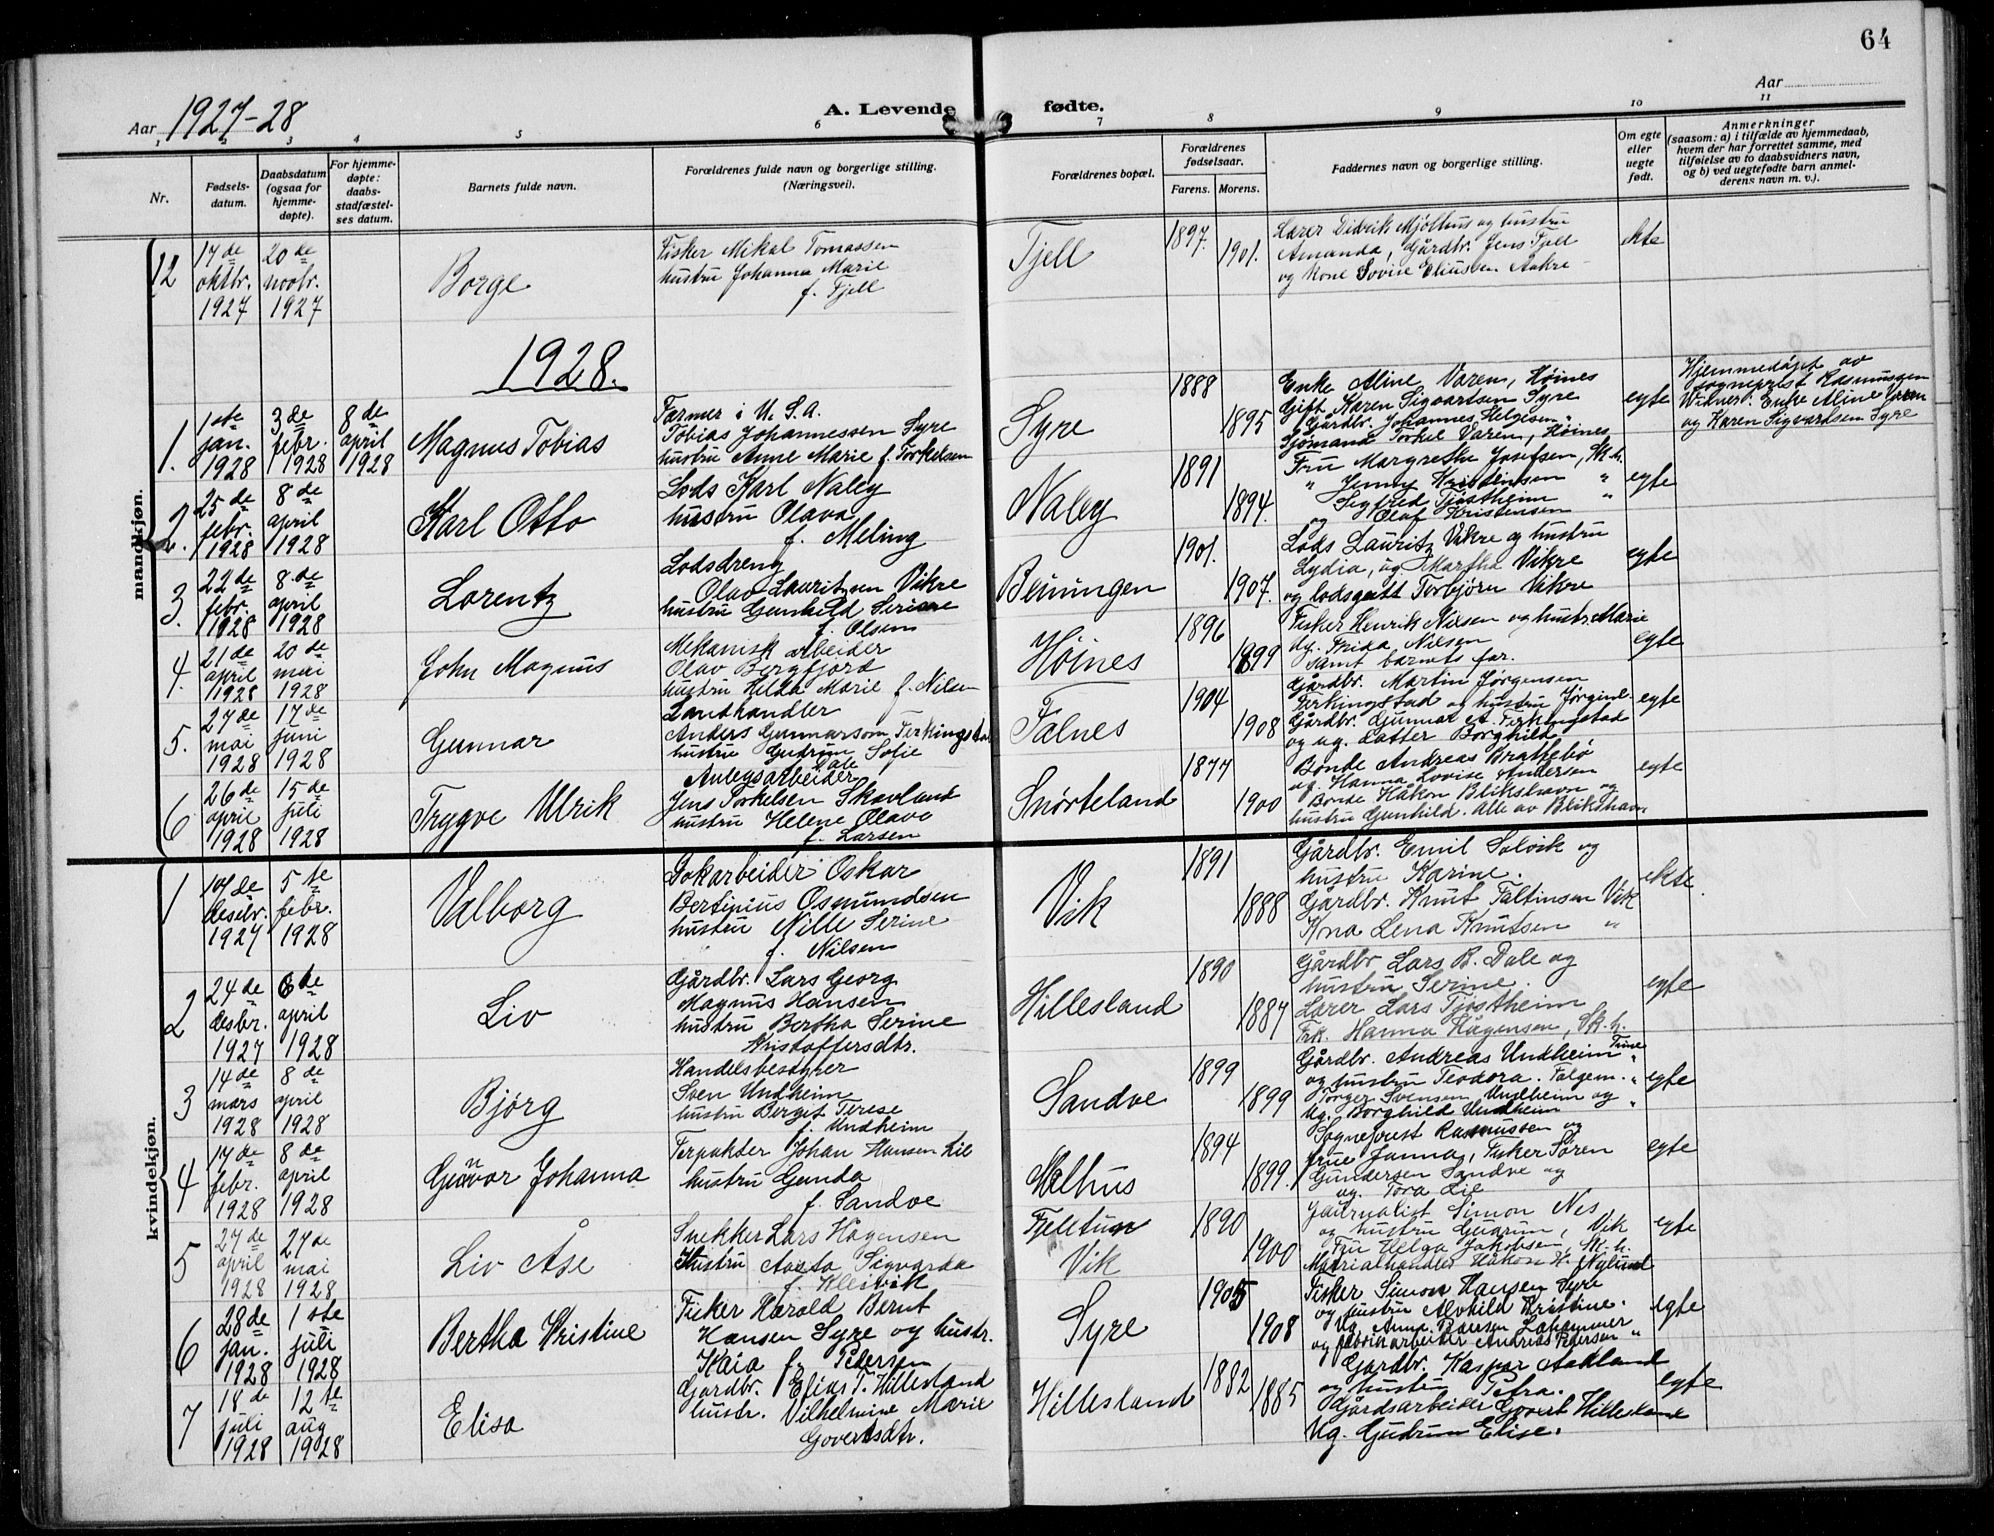 64
Aar 1927-28
A. Levende fødte.
Aar
1 2 3 4 5 6 7 8 9 10 11
Nr.
Fødsels-
datum.
Daabsdatum
(ogsaa for
hjemme-
døpte).
For hjemme-
døpte:
daabs-
stadfæstel-
ses datum.
Barnets fulde navn.
Forældrenes fulde navn og borgerlige stilling.
(Næringsvei).
Forældrenes bopæl.
Forældrenes
fødselsaar.
Farens. Morens.
Faddernes navn og borgerlige stilling.
Om egte
eller
uegte
født.
Anmerkninger
(saasom: a) i tilfælde av hjemmedaab,
hvem der har forrettet samme, med
tilføielse av to daabsvidners navn,
og b) ved uegtefødte barn anmel-
derens navn m. v.).
mandkjøn.
12
17de
oktbr.
1927
20de
novbr.
1927
Borge
Fisker Mikal Tomassen
hustru Johanna Marie
f. Fjell
Fjell
1897.
1901.
Lærer Didrik Mjølhus og hustru
Amanda, Gårdbr. Jens Fjell
og kone Lovise Eliussen Aakre
ekte
1928.
1.
1ste
jan.
1928
3de
febr.
1928
8de
april
1928
Magnus Tobias
Farmer i U. S. A.
Tobias Johannessen Syre
hustru Anne Marie f. Torkelsen
Syre
1888
1895
Enke Aline Varen, Høines
Gift Karen Sigvartsen Syre
Gårdbr. Johannes Helgesen "
Sjømand Torkel Varen, Høines
egte
Hjemmedøpt av
sogneprest Rasmussen
Vidner: Enke Aline Varen
og Karen Sigvardsen Syre
2.
25de
febr.
1928
8de
april
1928
Karl Otto
Lods Karl Naley
hustru Olava
f. Meling
Naley
1891
1894.
Fru Margrethe Josefsen, Sk.h.
" Jenny Kristensen "
Sigfred Tjøstheim "
og Olaf Kristensen
egte
3.
22de
febr.
1928
8de
april
1928
Lorentz
Lodsdreng
Olav Lauritzsen Vikre
hustru Gunhild Serine
f. Olsen
Beiningen
1901.
1907.
Lods Lauritz Vikre og hustru
Lydia, og Martha Vikre
og lodsgutt Torbjørn Vikre
egte
4.
21de
april
1928
20de
mai
1928
John Magnus
Mekanisk arbeider
Olav Bergfjord
hustru Hilda Marie f. Nilsen
Høines
1896
1899
Fisker Henrik Nilsen og hustr. Marie
Ug. Frida Nilsen
samt barnets far.
egte
5.
27de
mai
1928
17de
juni
1928
Gunnar
Landhandler
Anders Gunnarson Ferkingstad
hustru Gudrun Sofie
Dale
Falnes
1904
1908
Gårdbr. Martin Jørgensen
Ferkingstad og hustru Jørgine.
Gårdbr. Gunnar A. Ferkingstad
og ug. datter Borghild
egte
6
26de
april
1928
15de
juli
1928
Trygve Ulrik
Anlegsarbeider
Jens Torkelsen Skavland
hustru Helene Olava
f. Larsen
Snørteland
1877
1900
Bonde Andreas Brattebø
ug. Hanna Lovise Andersen
Bonde Håkon Blikshavn og
hustru Gunhild. Alle av Blikshavn.
egte
kvindekjøn.
1
desbr.
1927
5te
febr.
1928
Valborg
Dokarbeider Oskar
Bertinius Osmundsen
hustru Nille Serine
f. Nilsen
Vik
1891
1888
Gårdbr. Emil Solvik og
hustru Karine.
Gårdbr. Knut Faltinsen Vik
Kona Lena Knutsen "
ekte.
2
24de
desbr.
1927
6de
april
1928
Liv
Gårdbr. Lars Georg
Magnus Hansen
hustru Bertha Serine
Kristoffersdtr.
Hillesland
1890
1887
Gårdbr Lars B. Dale og
hustru Serine.
Lærer Lars Tjøstheim
Frk. Hanna Hågensen, Sk.h.
egte
3
14de
mars
1928
8de
april
1928
Bjørg
Handelsbestyrer
Sven Undheim
hustru Bergit Terese
f. Undheim
Sandve
1899
1899
Gårdbr. Andreas Undheim Time
og hustru Teodora. Falgem. "
Torger Svensen Undheim og
Ug. Borghild Undheim "
egte
4
17de
febr.
1928
8de
april
1928
Gunvor Johanna
Forpakter Johan Hansen Lie
hustru Gunda
f. Sandve
Melhus
1894
1899.
Sogneprest Rasmussen og
frue Janna, Fisker Søren
Gundersen Sandve og
ug. Tora Lie
egte
5
27de
april
1928
27de
mai
1928
Liv Åse
Snekker Lars Hågensen
Hustru Aasta Sigvarda
f. Kleivik
Fjelltun
Vik
1890
1900
Journalist Simon Nes
og hustru Gudrun, Vik
Fru Helga Jakobsen, Sk.h.
Matrialhandler Håkon H. Nylund
egte
6
28de
jan.
1928
1ste
juli
1928
Bertha Kristine
Fisker Harald Bernt
Hansen Syre og hustr.
Kaia f. Pedersen
Syre
1905
1908
Fisker Simon Hansen Syre
og hustru Alvhild Kristine.
Ug. Anna Pedersen Lahammer
og fabrikarbeider Andreas Pedersen "
egte
7
18de
juli
1928
12te
aug
1928
Elisa
Gårdbr. Elias T. Hillesland
hustr. Vilhelmine Marie
Govertsdtr.
Hillesland
1882
1885
Gårdbr. Kaspar Aakland
og hustru Petra.
Gårdsarbeider Govert Hillesland
Ug. Gudrun Elise.
egte